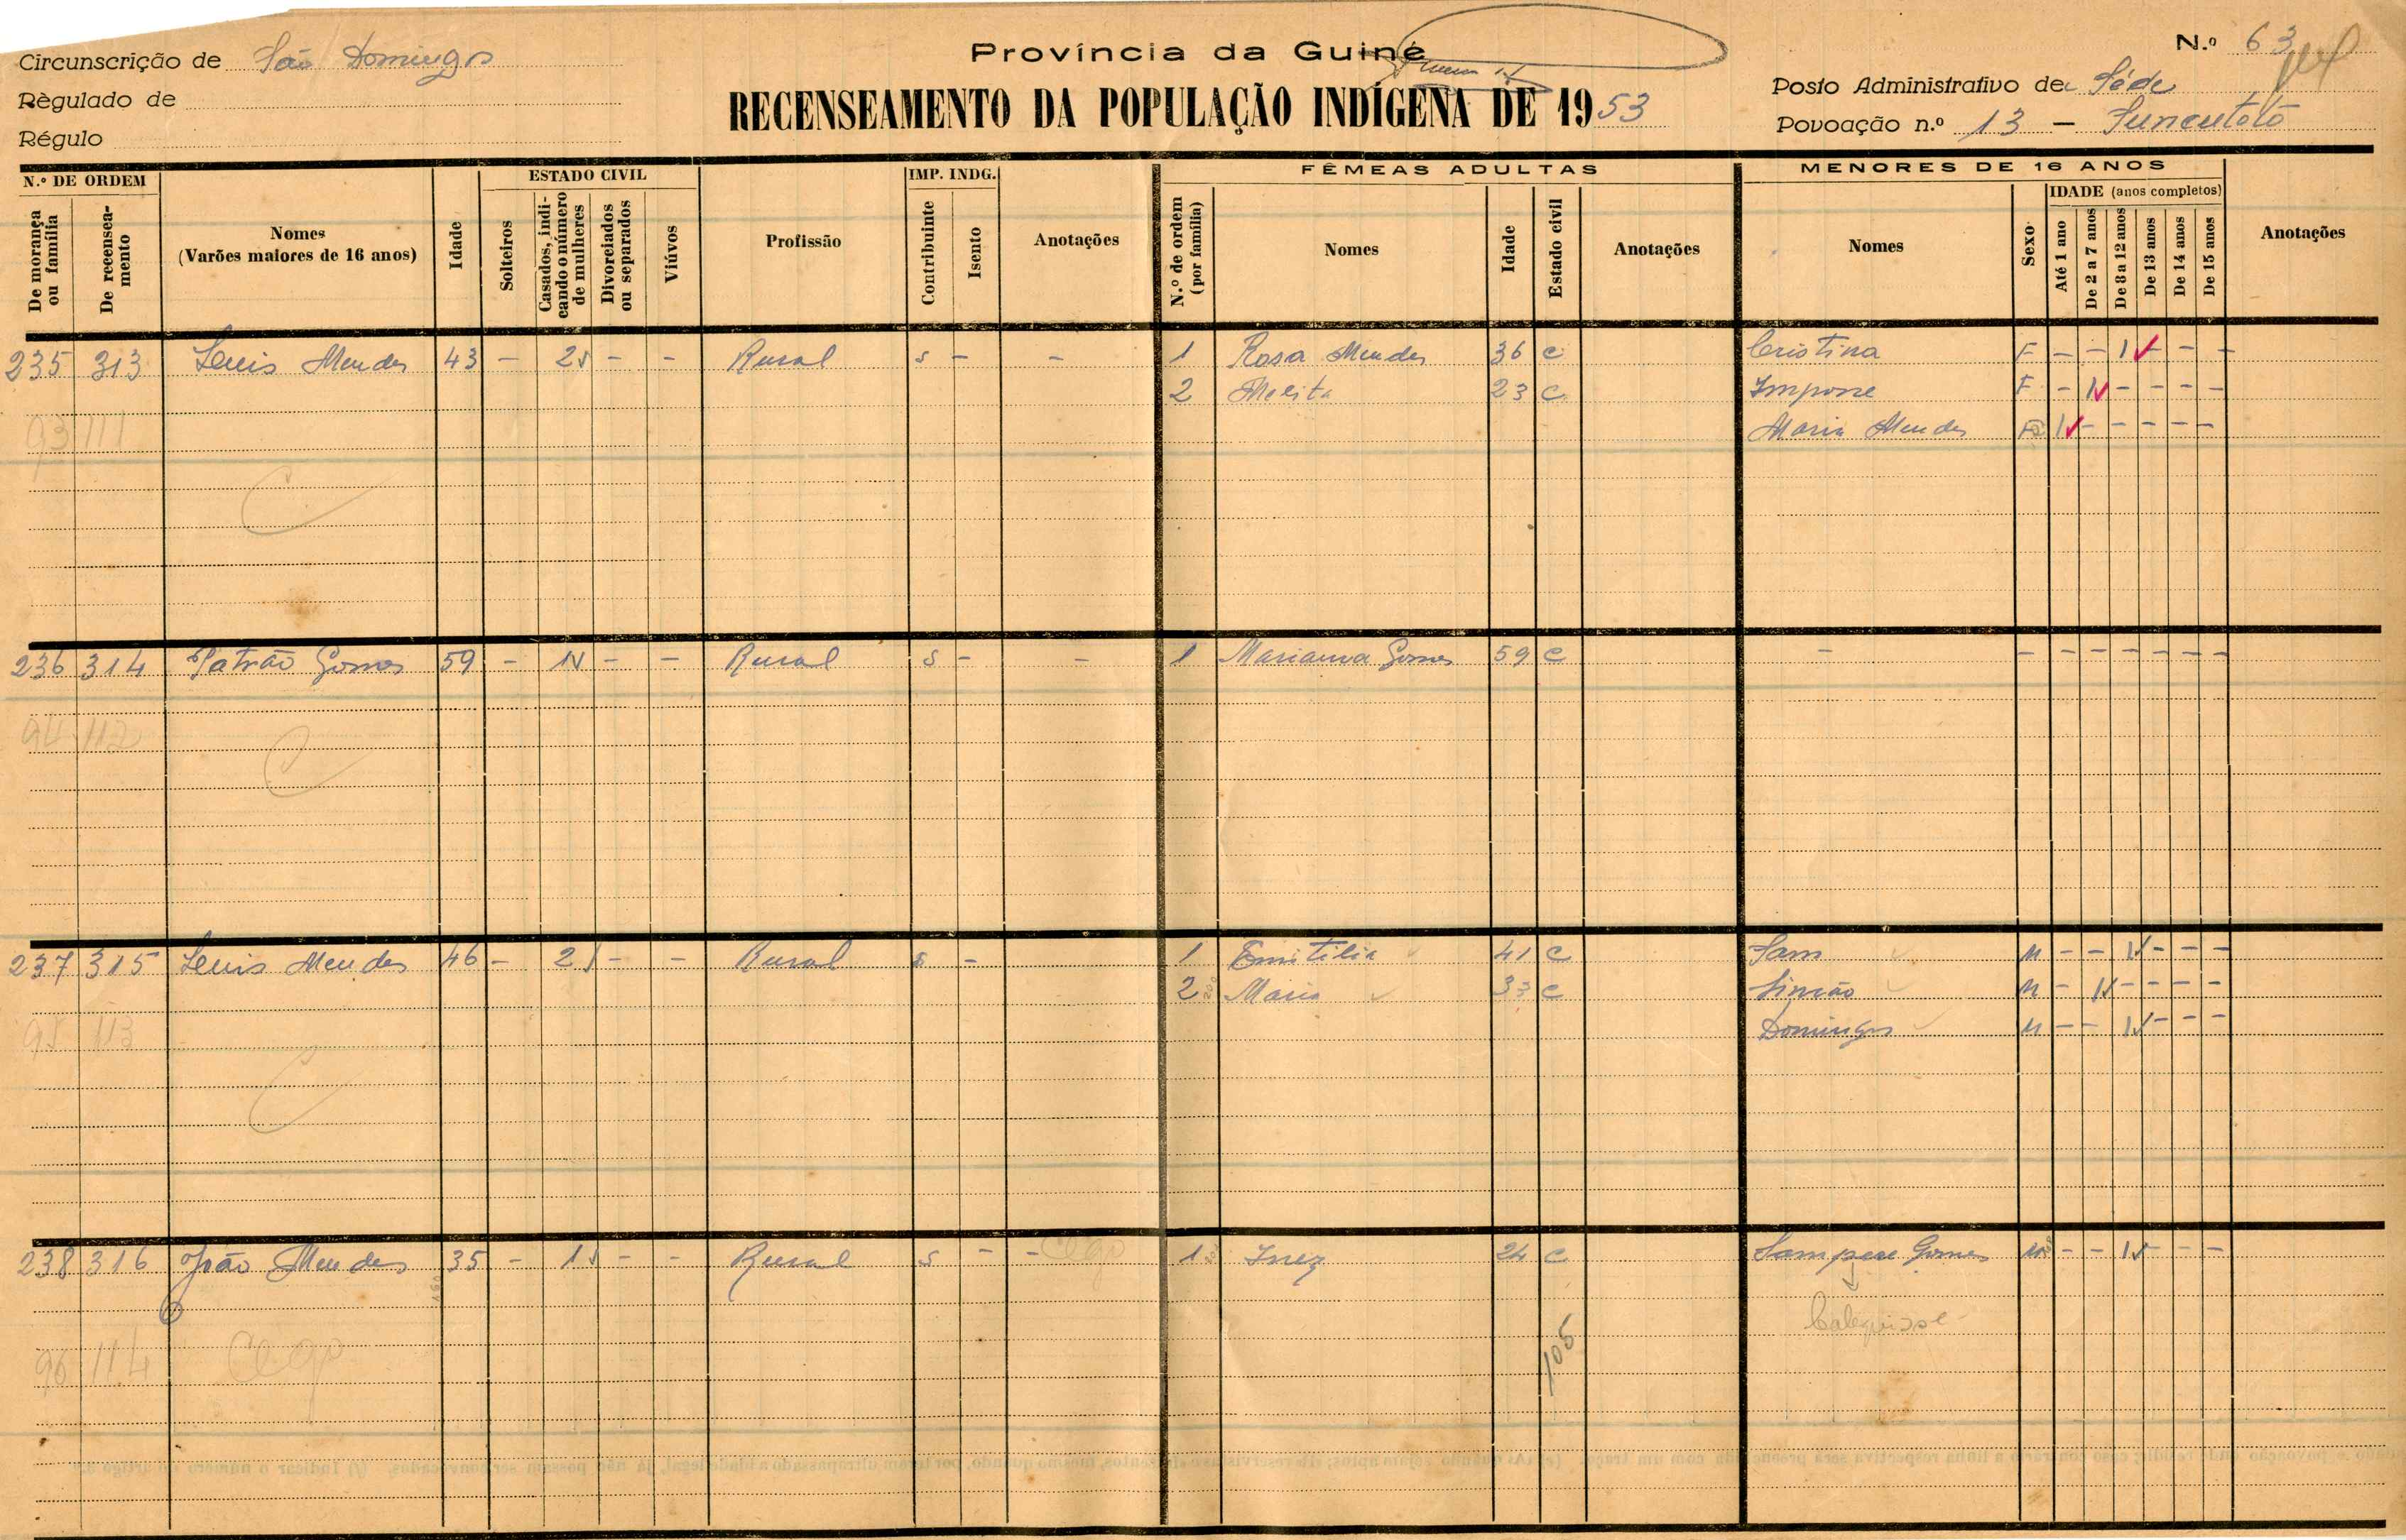 Circunscrição de São Domingos
Règulado de
Régulo
Província da Guiné
RECENSEAMENTO DA POPULAÇÃO INDÍGENA DE 1953
N.º 63
Posto Administrativo de Séde
Povoação n.º 13 -
N.º DE ORDEM
De morança ou família
De recenseamento
Nomes
(Varões maiores de 16 anos)
Idade
ESTADO CIVIL
Solteiros
Casados, indicando o número de mulheres
Divorciados ou separados
Viúvos
Profissão
IMP. INDG.
Contribuinte
Isento
Anotações
FÊMEAS ADULTAS
N.º de ordem (por família)
Nomes
Idade
Estado civil
Anotações
MENORES DE 16 ANOS
Nomes
Sexo
IDADE (anos completos)
Até 1 ano
De 2 a 7 anos
De 8 a 12 anos
De 13 anos
De 14 anos
De 15 anos
Anotações
235 313 Luis Mendes 43 - 2 - - Rural s - - 1 Rosa Mendes 36 c Cristina F - - 1 - - -
2 Melita 23 c F - 1 - - - -
93 111 Maria Mendes F 1 - - - - -
236 314 Patrão Gomes 59 - 1 - - Rural s - - 1 Mariana Gomes 59 c - - - - - - - -
94 112
237 315 Luis Mendes 46 - 2 - - Rural s - 1 41 c Sam M - - 1 - - -
2 Maria 33 c Simão M - 1 - - - -
95 113 Domingos M - - 1 - - -
238 316 João Mendes 35 - 1 - - Rural s - - Cego 1 Inez 24 c Gomes M - - 1 - - -
96 114 Cego
105